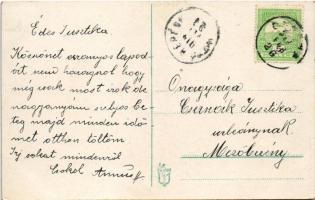 Édes Jusztika
Köszönöm aranyos lapod
ért nem haragszol hogy
még csak most írok de
nagyanyám súlyos be
teg majd minden idő
met otthon töltöm
Írj sokat mindenről
Csókol
Önagysága
Jusztika
urleánynak
Mezőberény
BÉKÉS